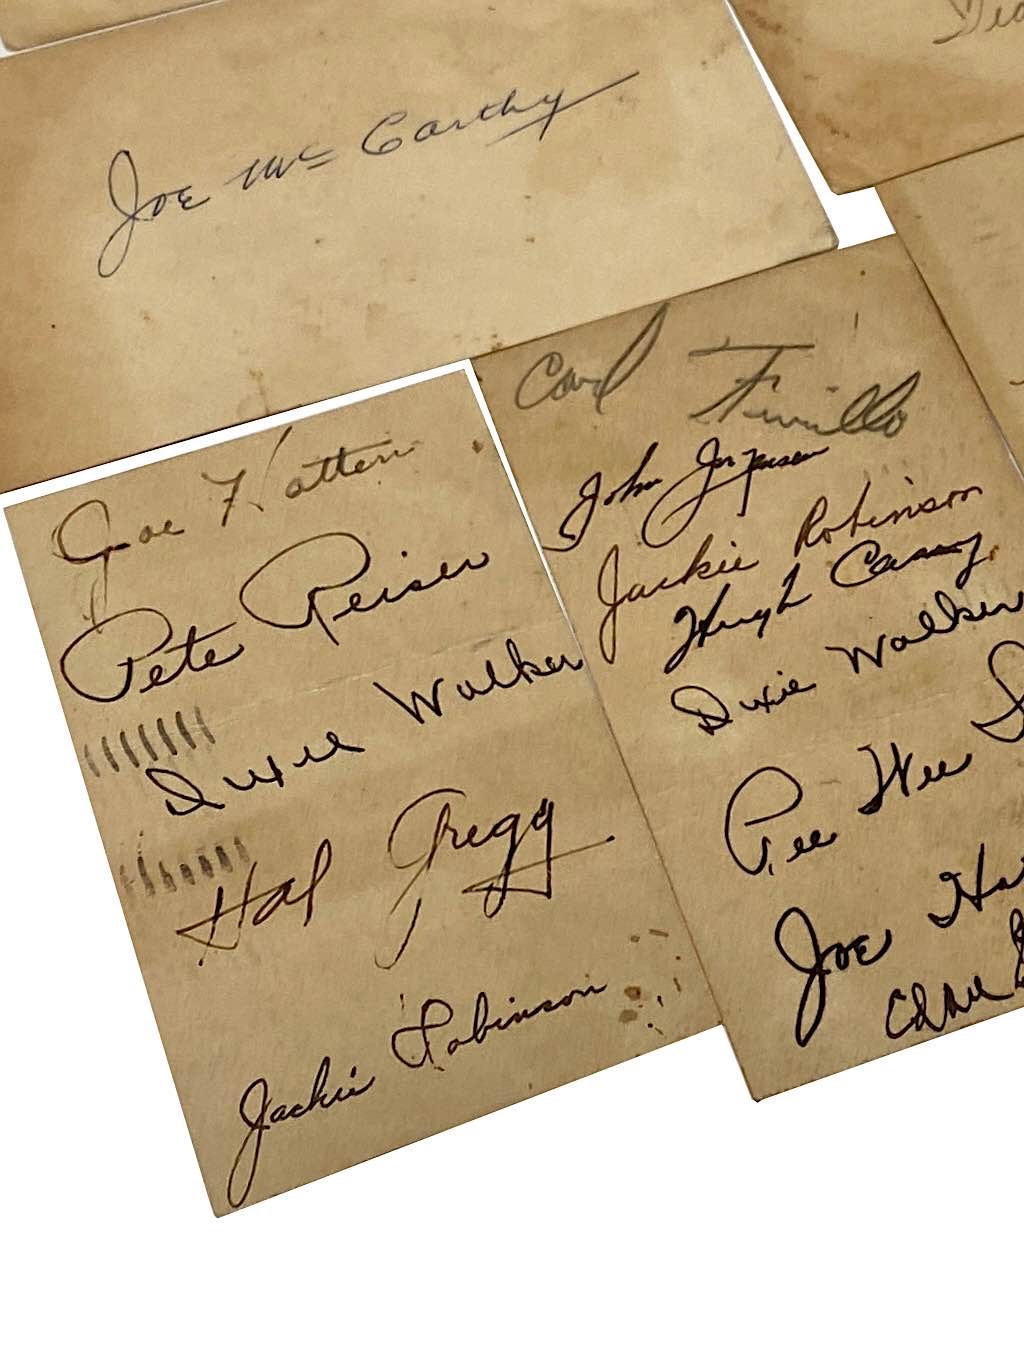 Joe McCarthy
Joe Hatten
Pete Reiser
Dixie Walker
Hal Gregg
Jackie Robinson
Carl Furillo
John Jorgensen
Jackie Robinson
Hugh Casey
Dixie Walker
Pee Wee
Joe Hat